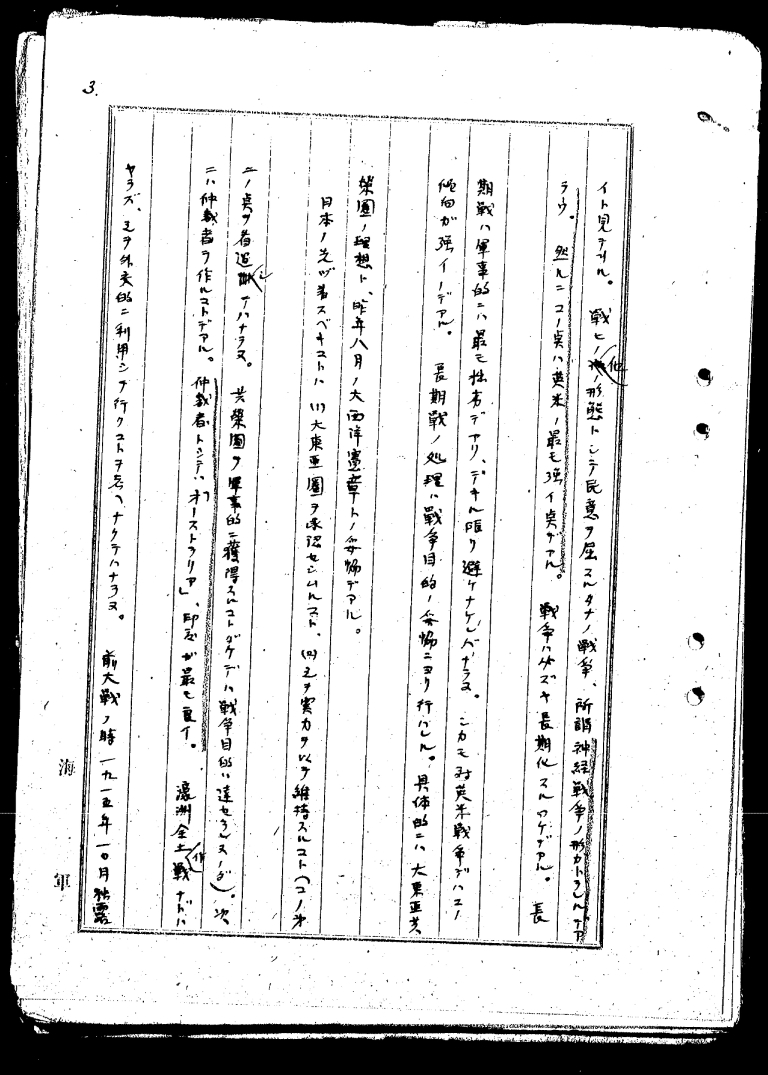 3.
イト見テヰル。 戦ヒノ他ノ形態トシテ民意ヲ屈スルタメノ戦争、所謂神経戦争ノ形ガトラレルデア
ラウ。 然ルニコノ点ハ英米ノ最モ強イ点デアル。 戦争ハ必ズヤ長期化スルワケデアル。 長
期戦ハ軍事的ニハ最モ拙劣デアリ、デキル限リ避ケナケレバナラヌ。 シカモ対英米戦争デハコノ
傾向ガ強イノデアル。 長期戦ノ処理ハ戦争目的ノ妥協ニヨリ行ハレル。具体的ニハ大東亜共
榮圏ノ理想ト、昨年八月ノ大西洋憲章トノ妥協デアル。
日本ノ先ヅ着スベキコトハ (1)大東亜圏ヲ承認セシムルコト、(2)之ヲ実力ヲ以テ維持スルコト(コノ
ニノ点ヲ看過シテハナラヌ。 共榮圏ヲ軍事的ニ獲得スルコトダケデハ戦争目的ハ達セラレヌノダ)。次
ニハ仲裁者ヲ作ルコトデアル。 仲裁者トシテハ「オーストラリア」、印度ガ最モ良イ。 濠洲全土作戦ナドハ
ヤラズ、之ヲ外交的ニ利用シテ行クコトヲ考ヘナクテハナラヌ。 前大戦ノ時一九一五年一〇月独露
海軍